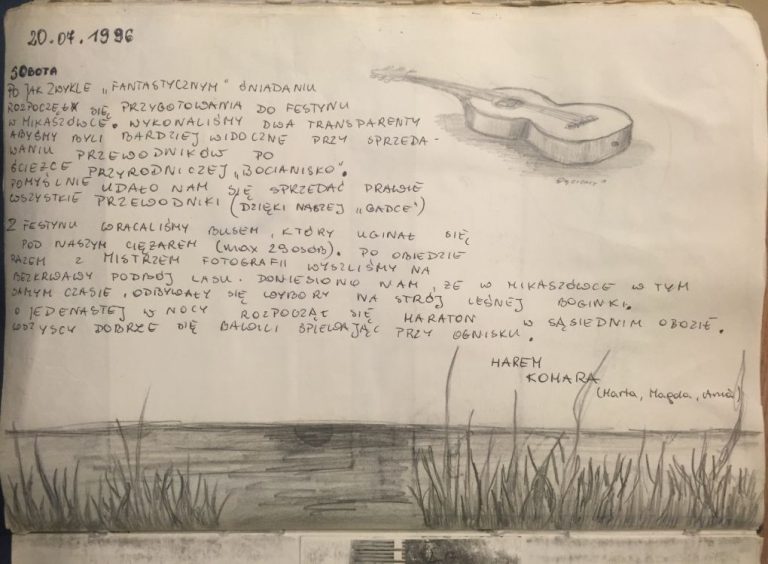 20.07.1996
SOBOTA
PO JAK ZWYKLE „FANTASTYCZNYM" ŚNIADANIU
ROZPOCZĘŁY SIĘ PRZYGOTOWANIA DO FESTYNU
W MIKASZÓWCE. WYKONALIŚMY DWA TRANSPARENTY
ABYŚMY BYLI BARDZIEJ WIDOCZNE PRZY SPRZEDA-
WANIU PRZEWODNIKÓW PO
ŚCIEŻCE PRZYRODNICZEJ „BOCIANISKO".
POMYŚLNIE UDAŁO NAM SIĘ SPRZEDAĆ PRAWIE
WSZYSTKIE PRZEWODNIKI (DZIĘKI NASZEJ „GADCE")
Z FESTYNU WRACALIŚMY BUSEM, KTÓRY UGINAŁ SIĘ
POD NASZYM CIĘŻAREM (max 29 OSÓB). PO OBIEDZIE
RAZEM Z MISTRZEM FOTOGRAFII WYSZLIŚMY NA
BEZKRWAWY PODBÓJ LASU. DONIESIONO NAM, ŻE W MIKASZÓWCE W TYM
SAMYM CZASIE, ODBYWAŁY SIĘ WYBORY NA STRÓJ LEŚNEJ BOGINKI.
O JEDENASTEJ W NOCY ROZPOCZĄŁ SIĘ MARATON W SĄSIEDNIM OBOZIE.
WSZYSCY DOBRZE SIĘ BAWILI ŚPIEWAJĄC PRZY OGNISKU.
HAREM
KOMARA
(Marta, Magda, Ania)